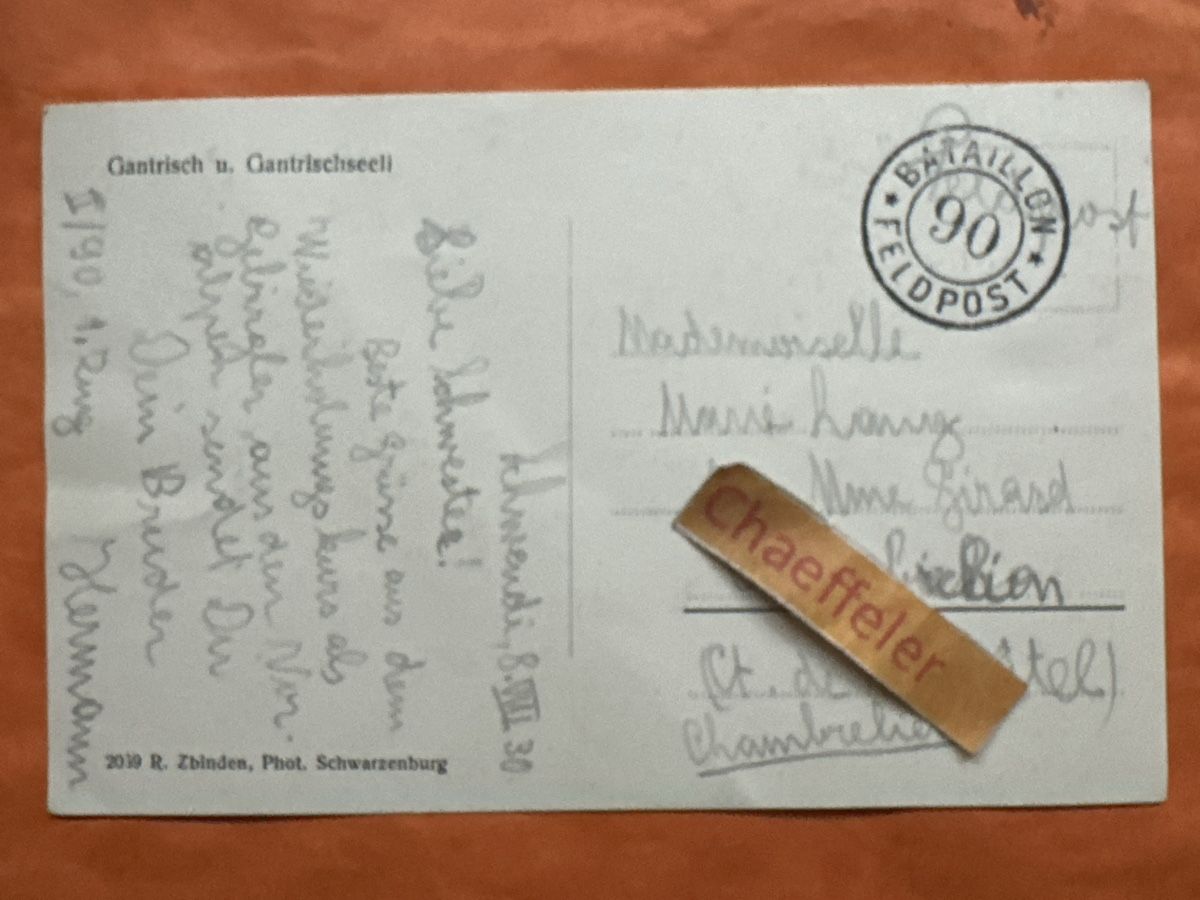 Gantrisch u. Gantrischseeli
BATAILLON
90
FELDPOST
Feldpost
Mademoiselle
Marie Lanng
Mme Girard
(Ct. de tel)
Chambrelie
Chaeffeler
Schwendi, 8. VIII 30
Liebe Schwester!
Beste Grüsse aus dem
Wiederholungskurs als
Gebirgler aus den Vor-
alpen sendet Dir
Dein Bruder
Hermann
I/90, 1. Zug
2019 R. Zbinden, Phot. Schwarzenburg